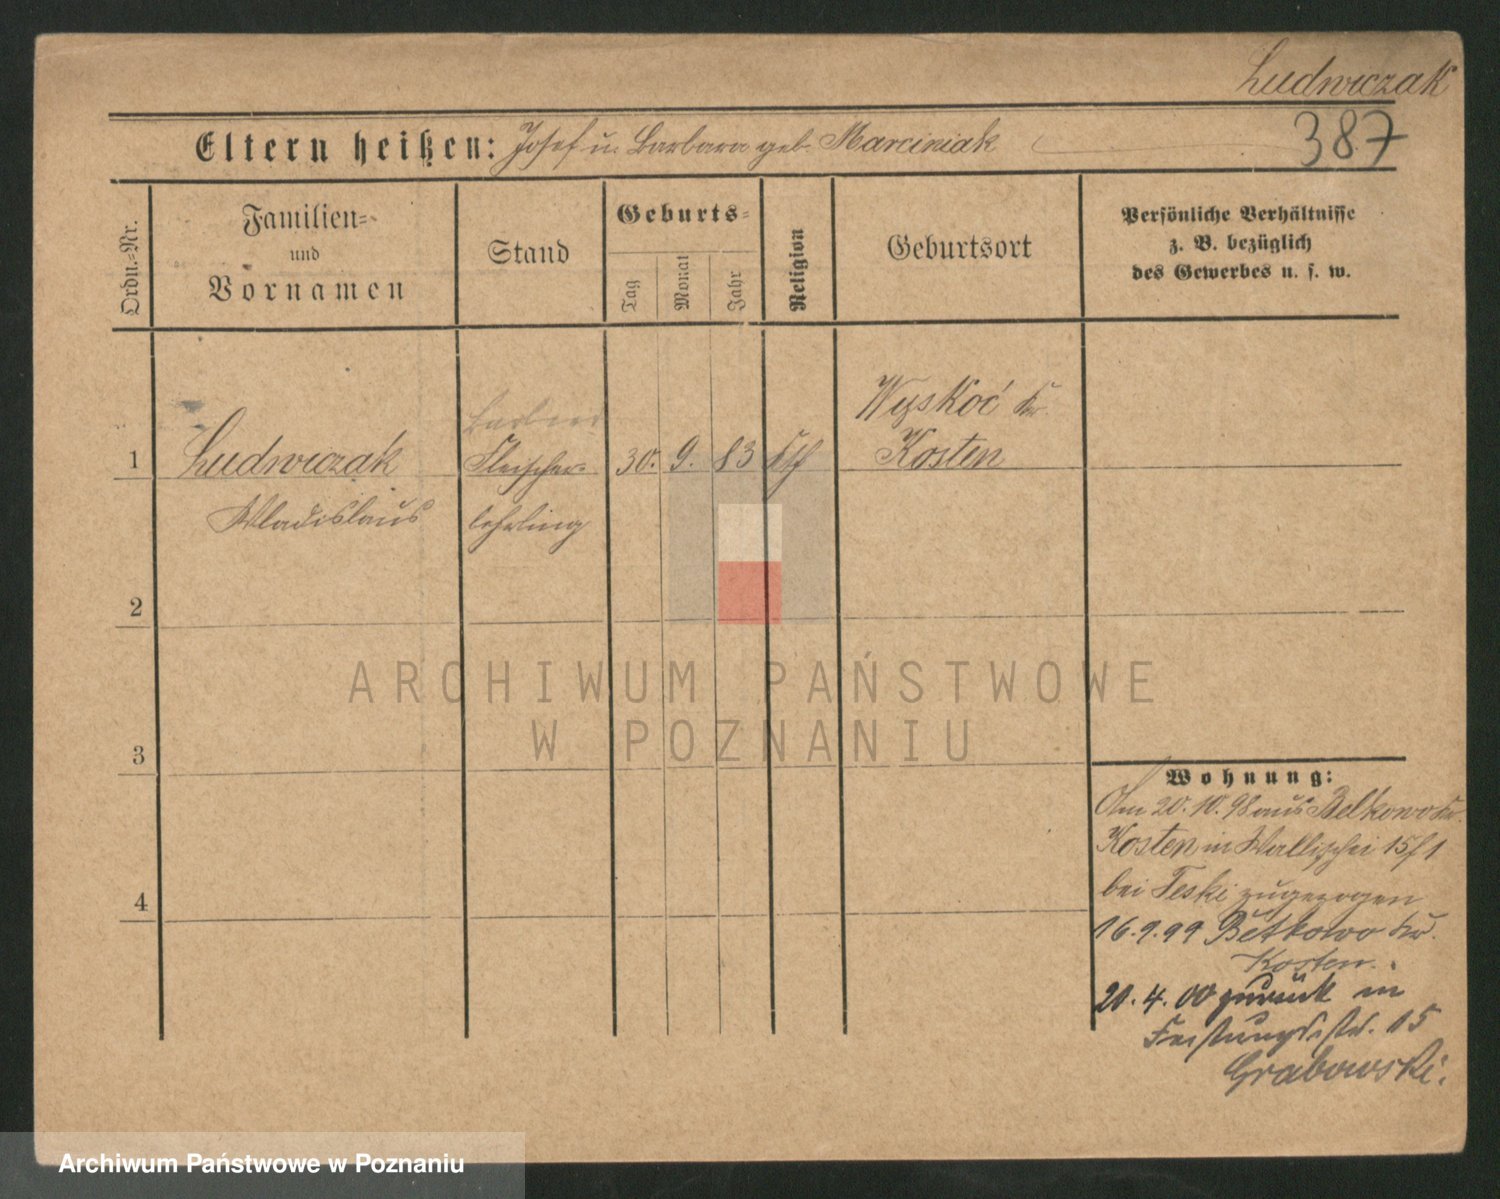 Ludwiczak
387
Eltern heißen: Josef u. Barbara geb. Marciniak
Ordn.=Nr.
Familien=
und
Vornamen
Stand
Geburts=
Tag
Monat
Jahr
Religion
Geburtsort
Persönliche Verhältnisse
z. B. bezüglich
des Gewerbes u. s. w.
Wyskoć Kr.
Barbier
1 Ludwiczak Fleischer= 30. 9. 83 Kth Kosten
Wladislaus lehrling
2
ARCHIWUM PAŃSTWOWE
W POZNANIU
3
Wohnung:
Am 20. 10. 98 aus Belkowo Kr.
Kosten in Wallischei 15/1
bei Teski zugezogen
4
16. 9. 99 Betkowo Kr.
Kosten.
20. 4. 00 zurück in
15
Grabowski.
Archiwum Państwowe w Poznaniu